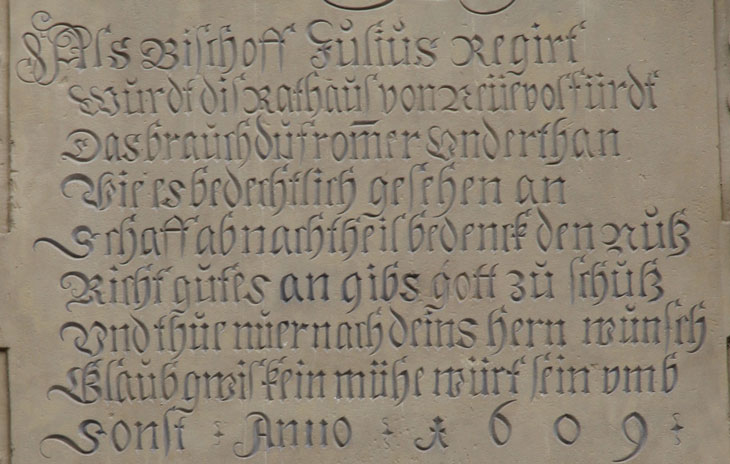 Als Bischoff Julius Regirt
Wurdt dis Rathaus von Neüe volfürdt
Das brauch du fromer Vnderthan
Wie es bedechtlich gesehen an
Schaff ab nachtheil bedenck den Nutz
Richt gutes an gibs gott zu schutz
Vnd thue nuer nach deins hern wunsch
Glaub gwis kein mühe würt sein vmb
Sonst Anno 1609